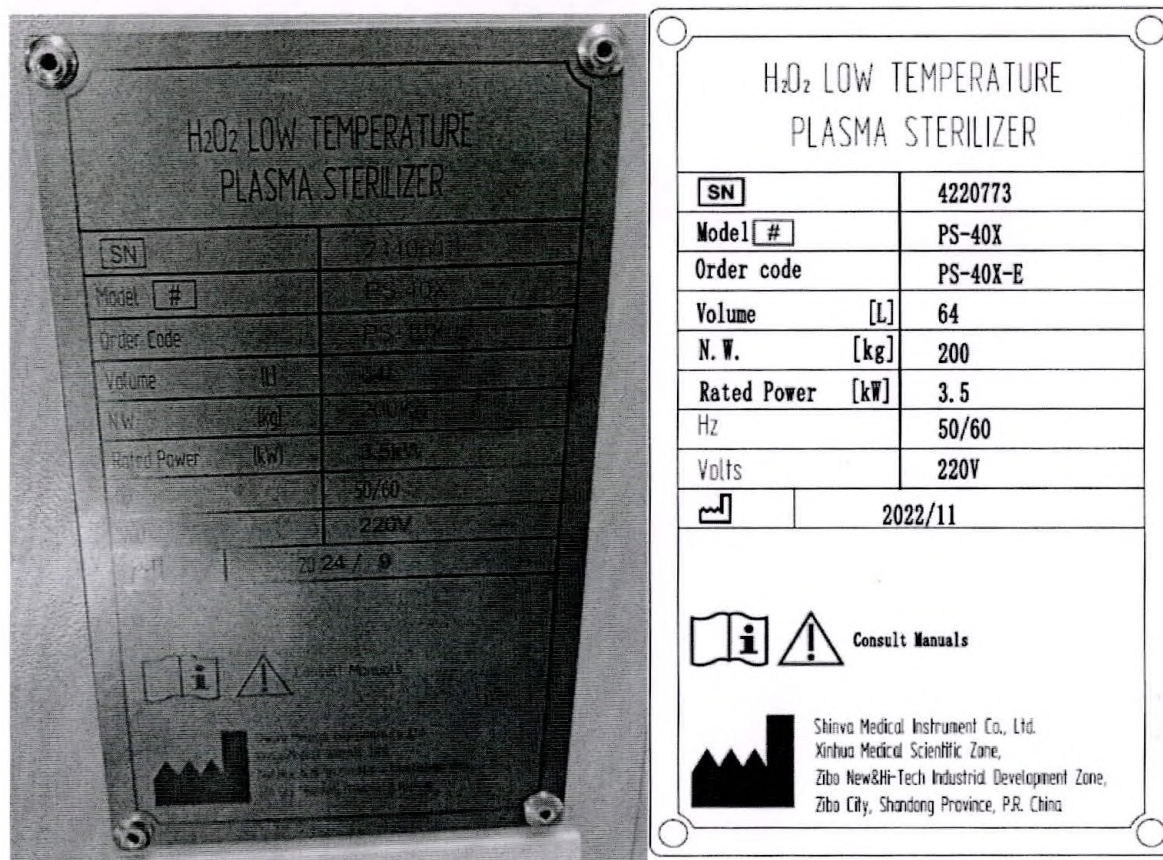 H2O2 LOW TEMPERATURE
PLASMA STERILIZER
SN
Model # PS-40X
Order Code
Volume
N.W. (kg)
Rated Power (kW) 3.5kW
50/60
220V
2024 / 9
i
Consult Manuals
H2O2 LOW TEMPERATURE
PLASMA STERILIZER
SN 4220773
Model # PS-40X
Order code PS-40X-E
Volume [L] 64
N.W. [kg] 200
Rated Power [kW] 3.5
Hz 50/60
Volts 220V
2022/11
i
Consult Manuals
Shinva Medical Instrument Co., Ltd.
Xinhua Medical Scientific Zone,
Zibo New&Hi-Tech Industrial Development Zone,
Zibo City, Shandong Province, P.R. China